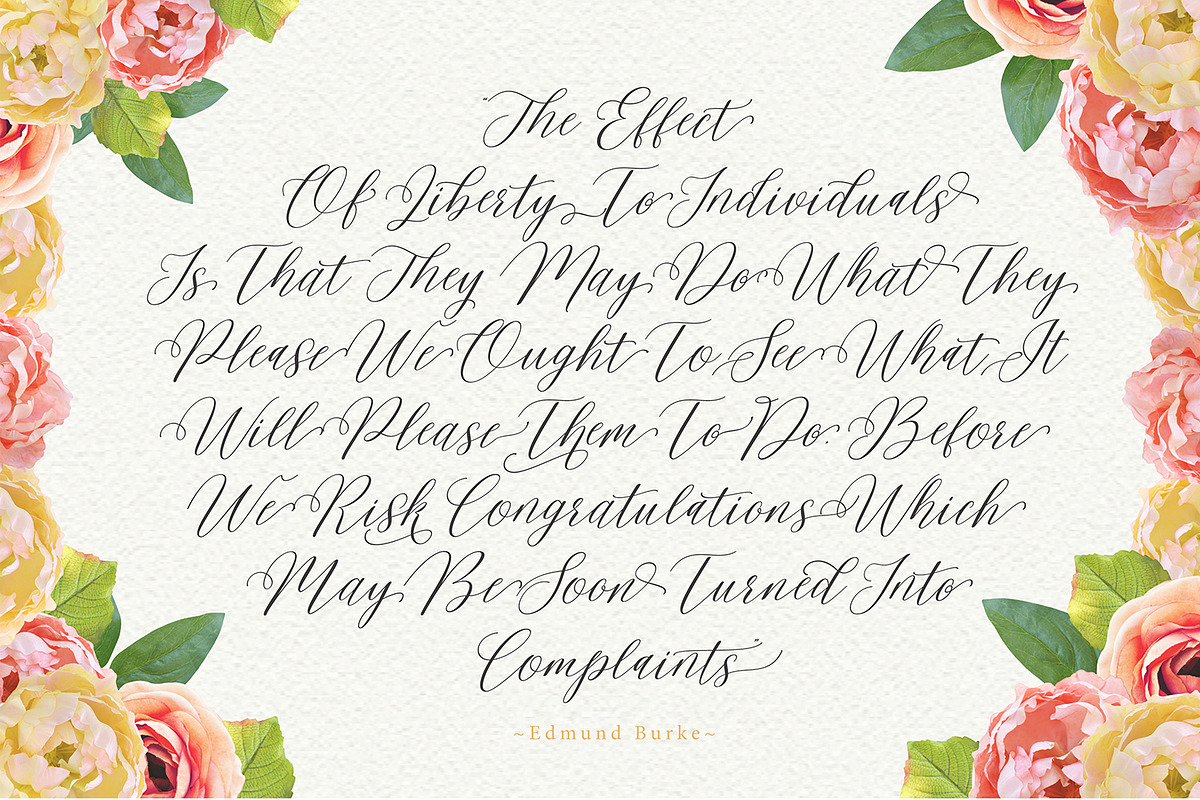 "The Effect
Of Liberty To Individuals
Is That They May Do What They
Please We Ought To See What It
Will Please Them To Do. Before
We Risk Congratulations Which
May Be Soon Turned Into
Complaints"
~Edmund Burke~